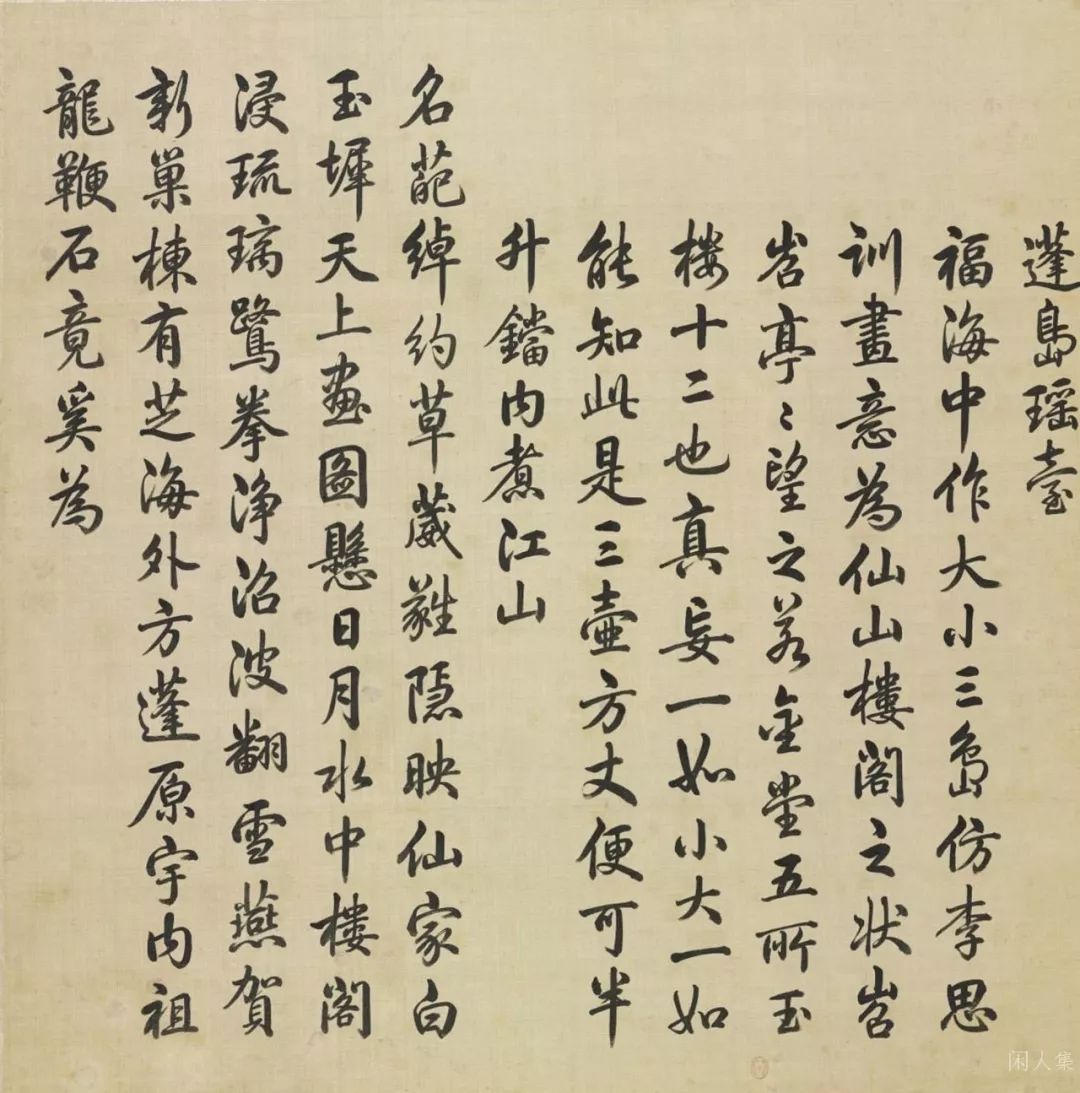 蓬島瑤臺
福海中作大小三島仿李思
訓畫意為仙山樓閣之狀岧
岧亭〻望之若金堂五所玉
樓十二也真妄一如小大一如
能知此是三壺方丈便可半
升鐺內煮江山
名葩綽約草葳蕤隱映仙家白
玉墀天上畫圖懸日月水中樓閣
浸琉璃鷺拳淨沼波翻雪燕賀
新巢棟有芝海外方蓬原宇內祖
龍鞭石竟奚為
闲人集